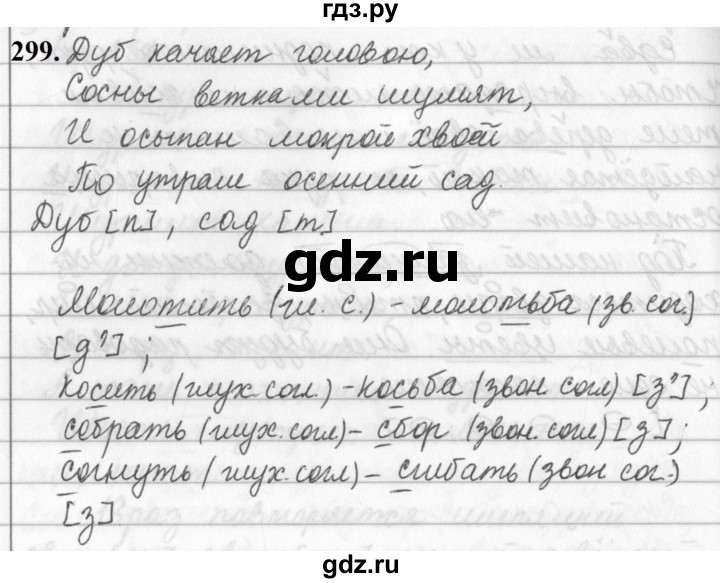 гдз.ру
299. Дуб качает головою,
Сосны ветками шумят,
И осыпан мокрой хвоей
По утрам осенний сад.
Дуб [п], сад [т]
gdz.ru
Молотить (гл. с.) - молотьба (зв. сог.)
[д'];
косить (глух. согл.) - косьба (звон. согл) [з'];
собрать (глух. согл) - сбор (звон. согл) [з];
согнуть (глух. согл) - сгибать (звон сог.)
[з]
gdz.ru